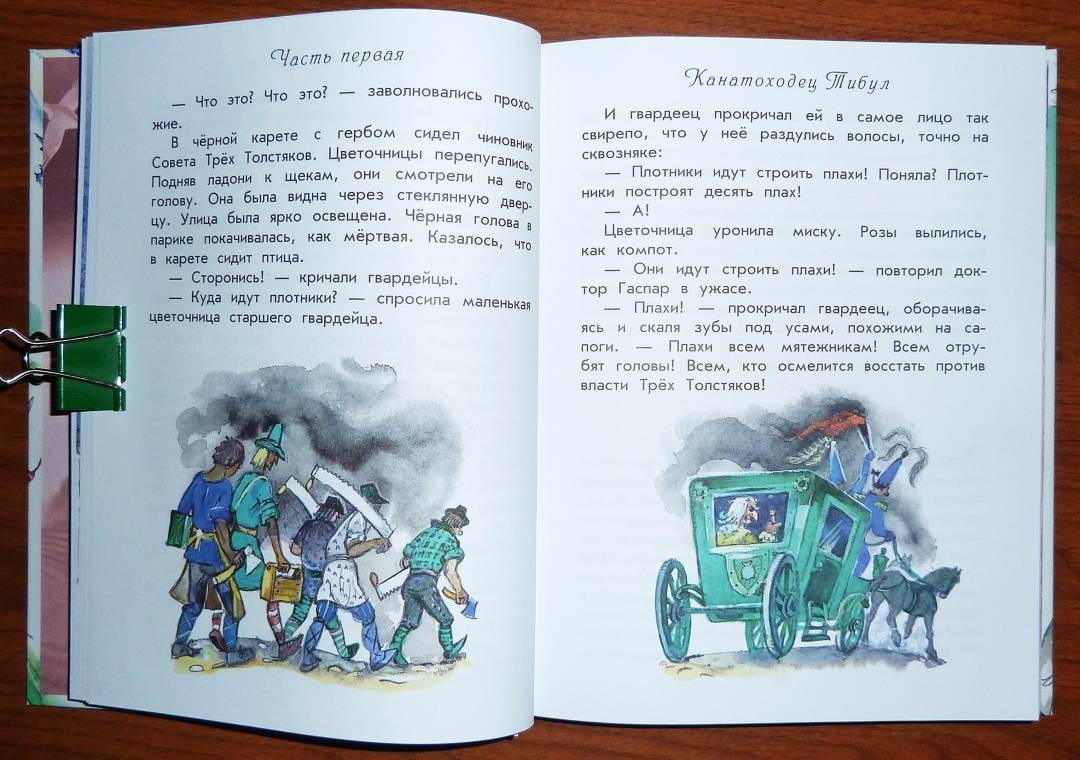 Часть первая
— Что это? Что это? — заволновались прохо-
жие.
В чёрной карете с гербом сидел чиновник
Совета Трёх Толстяков. Цветочницы перепугались.
Подняв ладони к щекам, они смотрели на его
голову. Она была видна через стеклянную двер-
цу. Улица была ярко освещена. Чёрная голова в
парике покачивалась, как мёртвая. Казалось, что
в карете сидит птица.
— Сторонись! — кричали гвардейцы.
— Куда идут плотники? — спросила маленькая
цветочница старшего гвардейца.
Канатоходец Тибул
И гвардеец прокричал ей в самое лицо так
свирепо, что у неё раздулись волосы, точно на
сквозняке:
— Плотники идут строить плахи! Поняла? Плот-
ники построят десять плах!
— А!
Цветочница уронила миску. Розы вылились,
как компот.
— Они идут строить плахи! — повторил док-
тор Гаспар в ужасе.
— Плахи! — прокричал гвардеец, оборачива-
ясь и скаля зубы под усами, похожими на са-
поги. — Плахи всем мятежникам! Всем отру-
бят головы! Всем, кто осмелится восстать против
власти Трёх Толстяков!